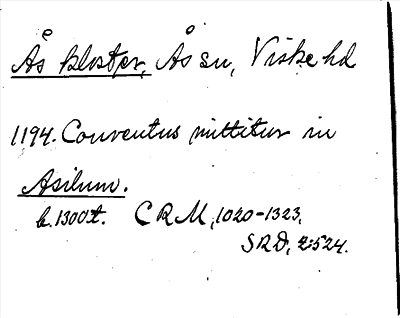 Ås kloster, Ås sn, Viske hd
1194. Conventus mittitur in
Asilum.
b. 1300 t. C R M, 1020-1323,
SRD, 2:524.